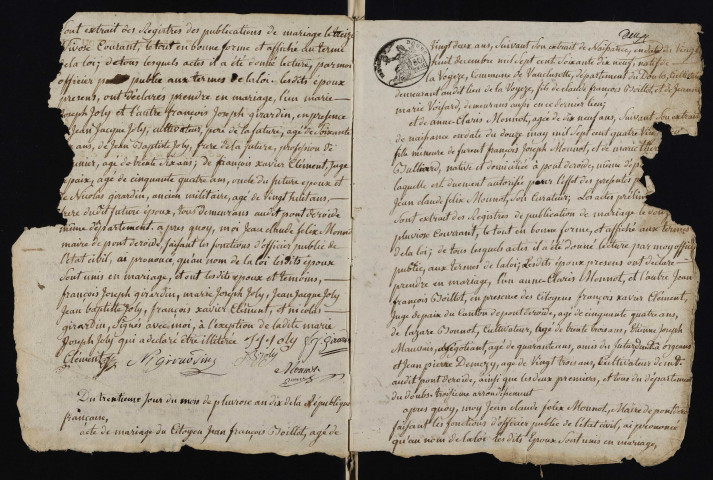 sont extrait des Registres des publications de mariage le treize
Nivose Courant, le tout en bonne forme et affiché au terme
de la loi; de tous lesquels actes il a été donné lecture, par moi
officier public aux termes de la loi. lesdits époux
presens, ont déclarés prendre en mariage, l'un marie
joseph Joly et l'autre françois Joseph girardin, en presence
de Jean Jacque Joly, cultivateur, pere de la future, agé de soixante
ans, de Jean Baptiste Joly, frere de la future, profession de
agé de trente dix ans; de françois xavier Clément Juge
de paix, agé de cinquante quatre ans, oncle du future epoux et
de Nicolas girardin, ancien militaire, agé de vingt huit ans,
frere dudit future époux, tous demeurans audit pont de roide
même département. a près quoy, moi Jean claude felix Monnot
maire de pont de roide, faisant les fonctions d'officier public de
l'état civil, ai prononcé qu'au nom de la loi lesdits époux
sont unis en mariage, et ont lesdits epoux et temoins,
françois Joseph girardin, marie Joseph Joly, Jean Jacque Joly
Jean baptiste Joly, françois xavier Clément, et nicolas
girardin, signés avec moi, à l'exception de ladite marie
Joseph Joly qui a déclaré être illétérée J J Joly f J Girardin
Clément N Girardin J B Joly
Monnot
Du trentieme jour du mois de pluviose an dix de la République
française,
acte de mariage du Citoyen Jean françois Boillot, agé de
Deux
Vingt deux ans, Suivant son extrait de Naissance, en date du vingt
huit decembre mil sept cent soixante dix neuf, natif de
la Voyeze, Commune de Vaucluse, département du Doubs, Cultivateur
demeurant audit lieu de la Voyeze, fils de claude françois Boillot et de Jeanne
marie Voisard, demeurans aussi en ce dernier lieu;
et de Anne-Claris Monnot, agée de dix neuf ans, Suivant son extrait
de naissance en date du douze may mil sept cent quatre vingt
fille mineure de furent françois Joseph Monnot, et de marie
native et domiciliée à pont de roide, même dép
laquelle est duement autorisée pour l'effet des presentes
Jean claude felix Monnot, son Curateur; Les actes prélim
sont extrait des Registres de publication de mariage le dix
pluviose Courrant, le tout en bonne forme, et affiché aux termes
de la loi; de tous lesquels actes il a été donné lecture par moy officier
public, aux termes de la loi; Lesdits époux presens ont déclaré
prendre en mariage, l'un anne-Claris Monnot, et l'autre Jean
françois Boillot, en presence des Citoyens françois xavier Clément,
Juge de paix du Canton de pont de roide, agé de cinquante quatre ans,
de Lazare Bonnot, Cultivateur, agé de trente trois ans, Etienne Joseph
Mauvais, Négotiant, agé de quarante ans, amis du futur
et Jean pierre Demogy, agé de vingt trois ans, Cultivateur
audit pont de roide, ainsi que les deux premiers, et tous du département
du doubs troisieme arrondissement
apres quoy, moy Jean claude felix Monnot, Maire de pont de roide
faisant les fonctions d'officier public de l'état civil, ai prononcé
qu'au nom de la loi lesdits époux sont unis en mariage,